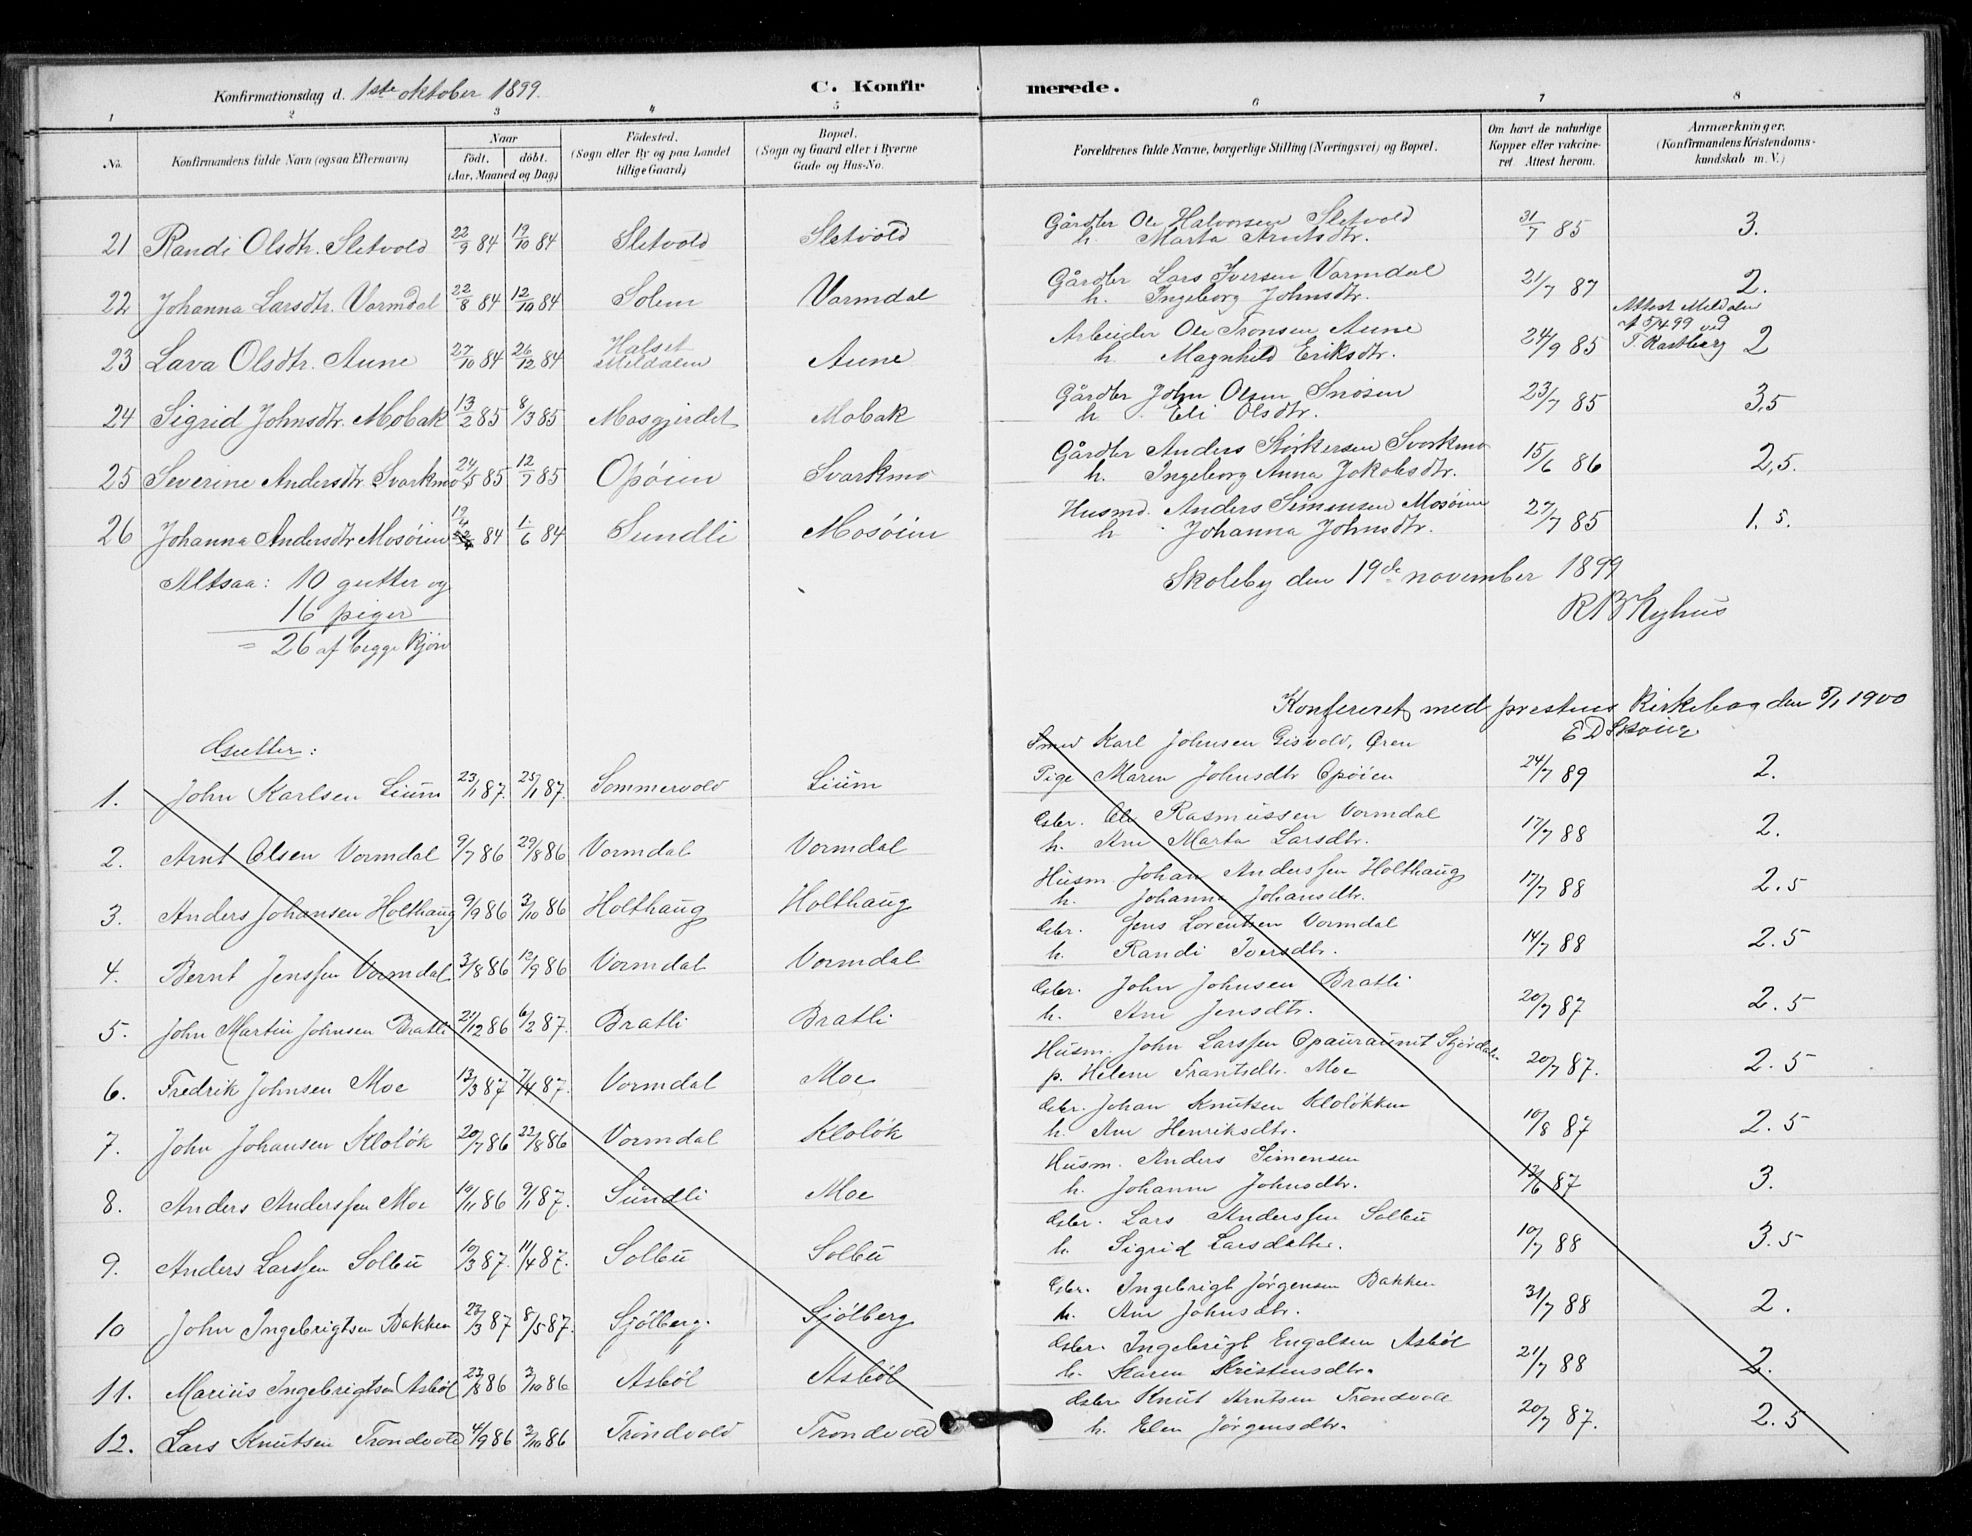 Konfirmationsdag d. 1ste oktober 1899. C. Konfirmerede.
1 2 3 4 5 6 7 8
No. Konfirmandens fulde Navn (ogsaa Efternavn) Naar født. døbt. (Aar, Maaned og Dag) Fødested. (Sogn eller By og paa Landet tillige Gaard) Bopæl. (Sogn og Gaard eller i Byerne Gade og Hus-No. Forældrenes fulde Navne, borgerlige Stilling (Næringsvei) og Bopæl. Om havt de naturlige Kopper eller vakcineret. Attest herom. Anmærkninger. (Konfirmandens Kristendomskundskab m. V.)
21 Randi Olsdtr. Sletvold 22/9 84 19/10 84 Sletvold Sletvold Gårdbr Ole Halvorsen Sletvold 31/7 85 3.
h. Marta Arntsdtr.
22 Johanna Larsdtr. Vormdal 22/8 84 12/10 84 Solem Vormdal Gårdbr Lars Iversen Vormdal 21/7 87 2.
h. Ingeborg Johnsdtr.
23 Lava Olsdtr. Aune 27/10 84 26/12 84 Halset Meldalen Aune Arbeider Ole Tronsen Aune 24/9 85 Attest Meldalen 5/4 99 ved 2
h. Magnhild Eriksdtr.
24 Sigrid Johnsdtr. Mobak 13/2 85 8/3 85 Mosgjerdet Mobak Gårdbr John Olsen Snosen 23/7 85 3,5
h. Eli Olsdtr.
25 Severine Andersdtr Svorkmo 24/5 85 12/7 85 Opøien Svorkmo Gårdbr Anders Størkersen Svorkmo 15/6 86 2,5.
h. Ingeborg Anna Jakobsdtr.
26 Johanna Andersdtr Mosøien 84 1/6 84 Sundli Mosøien Husmd. Anders Simensen Mosøien 27/7 85 1.5.
h. Johanna Johnsdtr.
Altsaa: 10 gutter og
16 piger
= 26 af begge kjøn
Skoleby den 19de november 1899
Konfereret med prestens kirkebog den 5/1 1900
Gutter:
1. John Karlsen Lium 23/1 87. 25/1 87. Sommervold Lium Smed Karl Johnsen Gisvold, Øren 24/7 89 2.
Pige Maren Johnsdtr Opøien
2. Arnt Olsen Vormdal 9/7 86 29/8 86 Vormdal Vormdal Gbr. Ole Rasmussen Vormdal 17/7 88 2.
h. Ane Marta Larsdtr.
3. Anders Johansen Holthaug 9/9 86 3/10 86 Holthaug Holthaug Husm. Johan Anderssen Holthaug 17/7 88 2.5
h. Johanna Johansdtr.
4. Bernt Jenssen Vormdal 3/8 86 12/9 86 Vormdal Vormdal Gbr. Jens Lorentsen Vormdal 14/7 88 2.5
h. Randi Iversdtr.
5. John Martin Johnsen Bratli 21/12 86 6/2 87. Bratli Bratli Gbr. John Johnsen Bratli 20/7 87 2.5
h. Ane Jensdtr.
6. Fredrik Johnsen Moe 13/3 87 7/4 87. Vormdal Moe Husm. John Larssen
p. Helene Frantsdtr. Moe 20/7 87. 2.5
7. John Johansen Kloløk 20/7 86 22/8 86 Vormdal Kloløk Gbr. Johan Knutsen Kloløkken 10/8 87 2.5
h. Ane Henriksdtr.
8. Anders Anderssen Moe 10/11 86 9/1 87. Sundli Moe Husm. Anders Simensen 13/6 87 3.
h. Johanne Johnsdtr.
9. Anders Larssen Solbu 10/3 87. 11/4 87. Solbu Solbu Gbr. Lars Anderssen Solbu 10/7 88 3.5
h. Sigrid Larsdatter.
10 John Ingebrigtsen Bakken 23/3 87 8/5 87. Sjølberg. Sjølberg Gbr. Ingebrigt Jørgensen Bakken 31/7 88 2.
h. Ane Johnsdtr.
11. Marius Ingebrigtsen Asbøl 23/8 86 3/10 86 Asbøl Asbøl Gbr. Ingebrigt Engelsen Asbøl 21/7 88 2.
h. Karen Kristensdtr.
12. Lars Knutsen Trondvold 4/9 86 3/10 86 Trondvold Trondvold Gbr. Knut Arntsen Trondvold 20/7 87. 2.5
h. Elen Jørgensdtr.